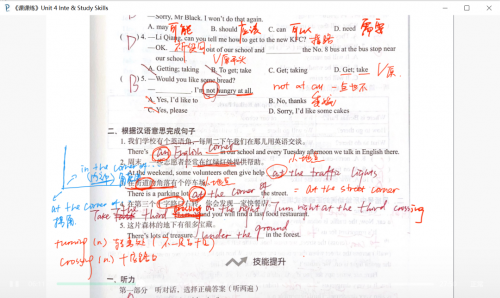 《课课练》Unit 4 Inte & Study Skills
—Sorry, Mr Black. I won't do that again.
A. may 可能 B. should 应该 C. can 可以 D. need 需要
(D) 4. —Li Qiang, can you tell me how to get to the new KFC? 指路
—OK. out of our school and the No. 8 bus at the bus stop near
our school.
A. Getting; taking B. To get; take C. Get; taking D. Get; take V原
(B) 5. —Would you like some bread?
— . I'm not hungry at all. not at all 一点也不
A. Yes, I'd like to B. No, thanks
C. Yes, please D. Sorry, I'd like some cakes
二、根据汉语意思完成句子
1. 我们学校有个英语角,每周二下午我们在那儿用英语交谈。
There's an English corner in our school and every Tuesday afternoon we talk in English there.
2. 周末,一些志愿者经常在红绿灯处提供帮助。
At the weekend, some volunteers often give help at the traffic lights.
3. 在街道的角落有个停车场。
There is a parking lot at the corner of the street. = at the street corner
in the corner of
at the corner of
4. 在第三个十字路口右转,你会发现一家快餐店。
Take the third turning on the right and you will find a fast food restaurant. Turn right at the third crossing
5. 这片森林的地下有很多宝藏。
There's lots of treasure under the ground in the forest.
turning (n)
crossing (n) 十字路口
技能提升
一、听力
第一部分 听对话,选择正确答案(听两遍)